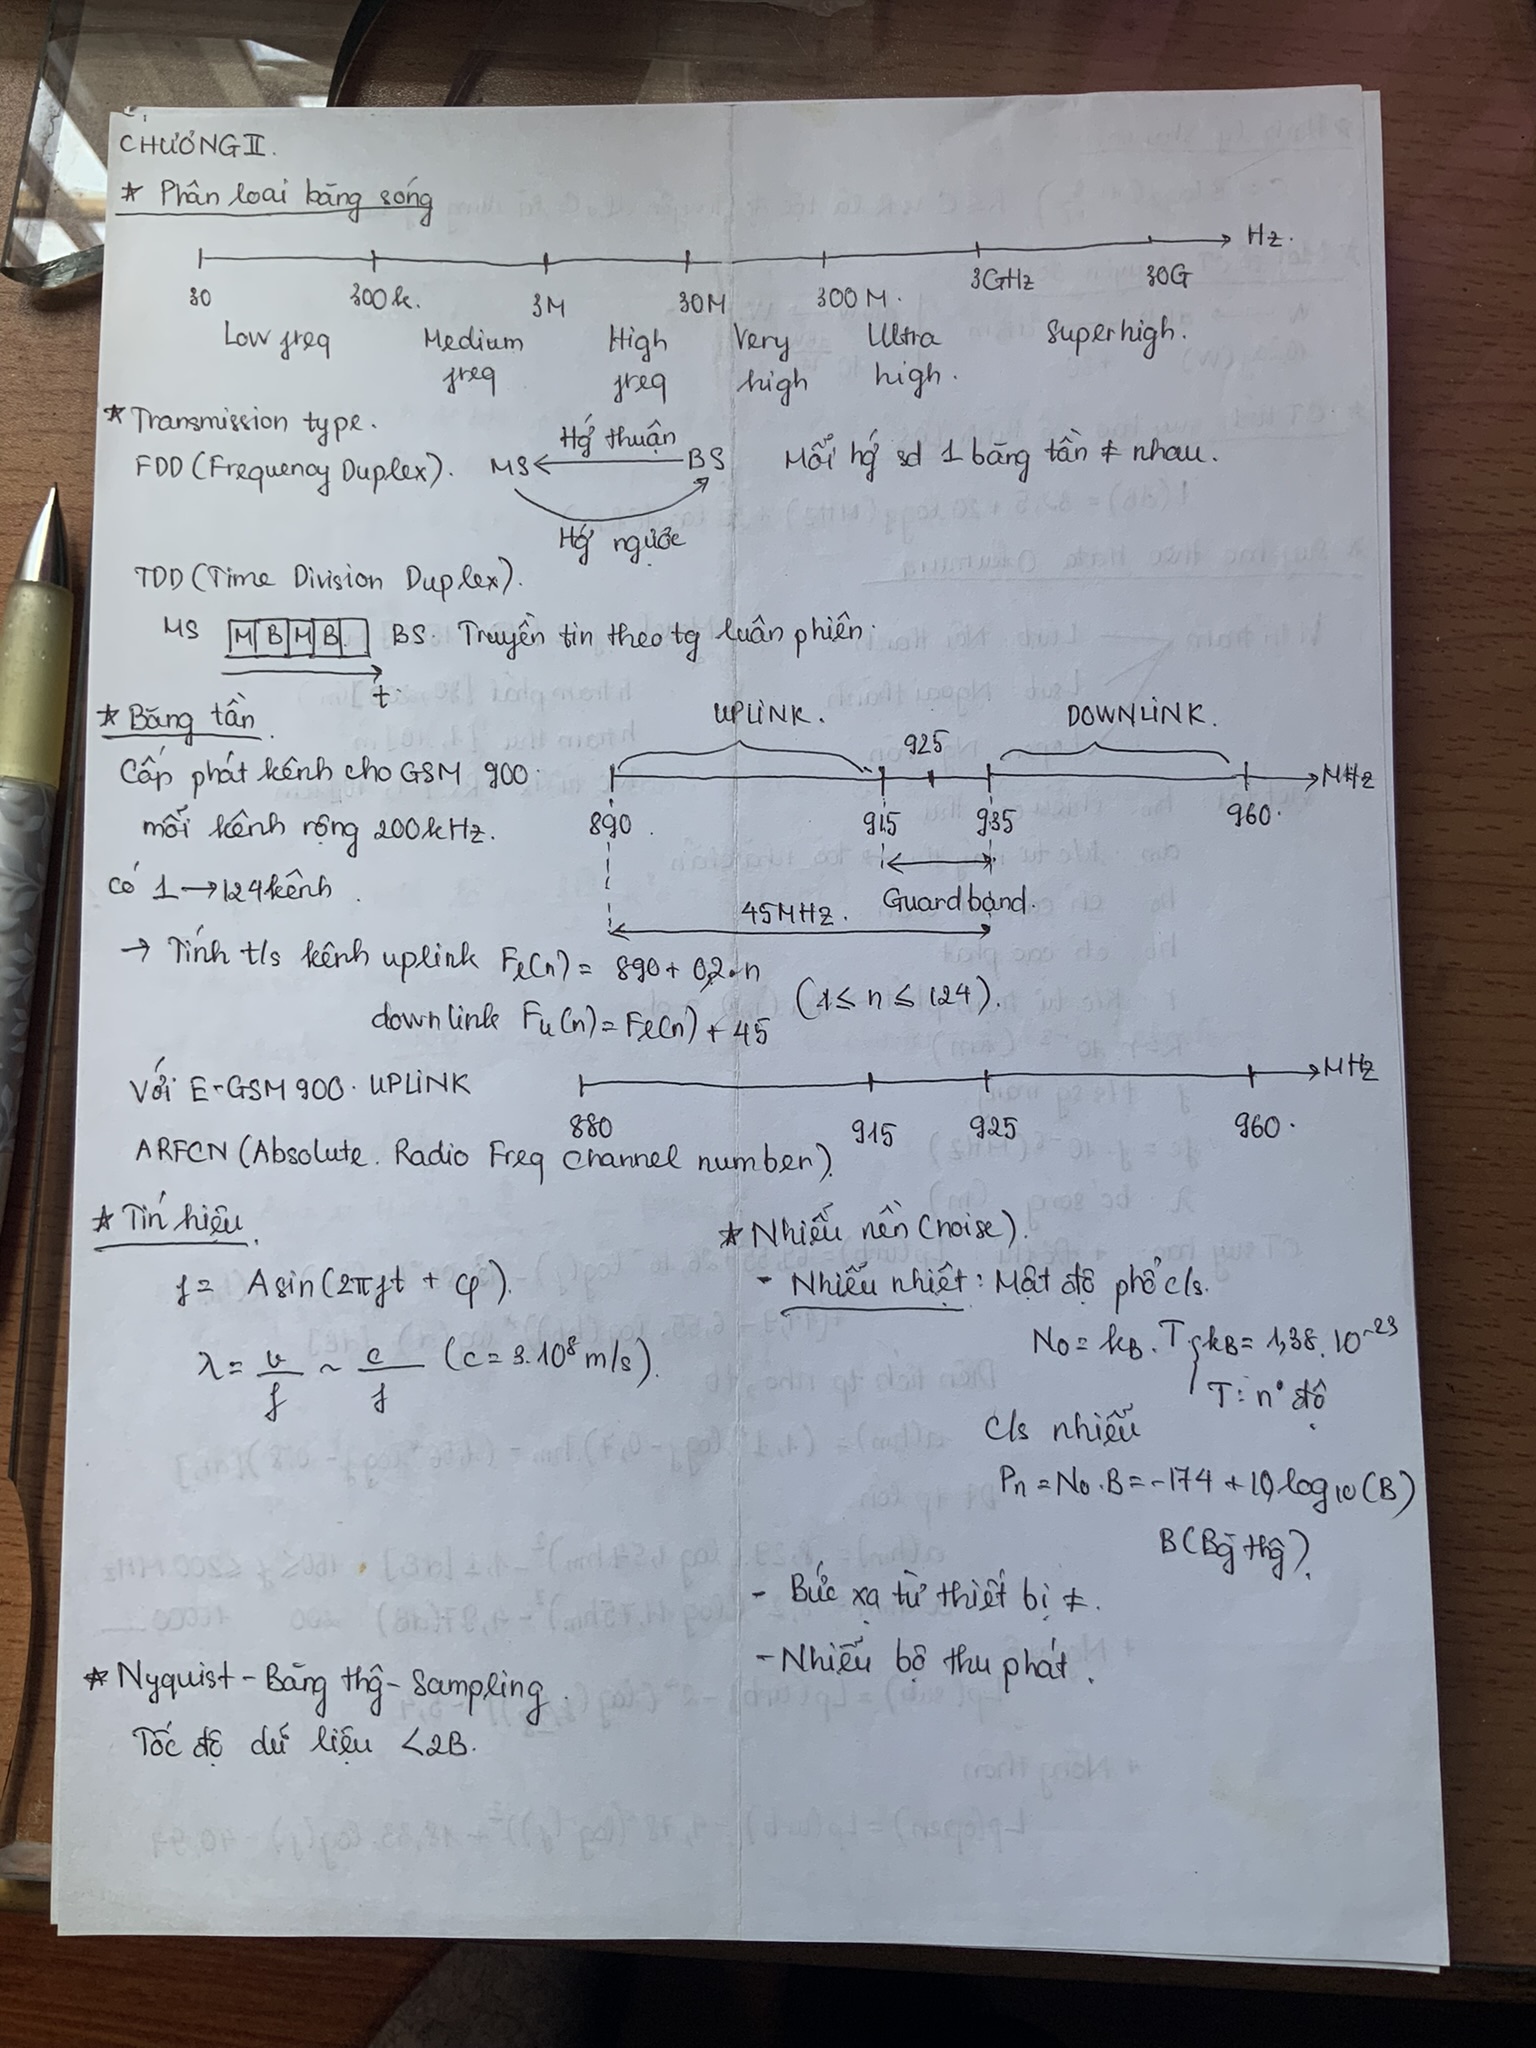 CHƯƠNG II.
* Phân loại băng sóng
Hz.
30 300k. 3M 30M 300M. 3GHz 30G
Low freq Medium freq High freq Very high Ultra high. Superhigh.
* Transmission type.
FDD (Frequency Duplex). MS Hg´ thuận BS Mỗi hg´ sd 1 băng tần ≠ nhau.
Hg´ ngược
TDD (Time Division Duplex).
MS M B M B BS. Truyền tin theo tg luân phiên.
t.
* Băng tần.
UPLINK. 925 DOWNLINK.
Cấp phát kênh cho GSM 900.
MHz
mỗi kênh rộng 200kHz.
890. 915 935 960.
có 1 → 124 kênh.
45MHz. Guard band.
→ Tính t/s kênh uplink Fl(n) = 890 + 0,2.n
(1 ≤ n ≤ 124).
downlink Fu(n) = Fl(n) + 45
Với E-GSM 900. UPLINK MHz
880 915 925 960.
ARFCN (Absolute. Radio Freq Channel number).
* Tín hiệu.
f = A sin(2πft + φ).
λ = v/f ~ c/f (c = 3.10⁸ m/s).
* Nhiễu nền (noise).
- Nhiễu nhiệt: Mật độ phổ c/s.
N₀ = kB.T { kB = 1,38.10⁻²³
T: n° độ
C/s nhiễu
Pn = N₀.B = -174 + 10log₁₀(B)
B (Bg̃ thg̃).
- Bức xạ từ thiết bị ≠.
- Nhiễu bộ thu phát.
* Nyquist - Băng thg̃ - Sampling.
Tốc độ dữ liệu < 2B.